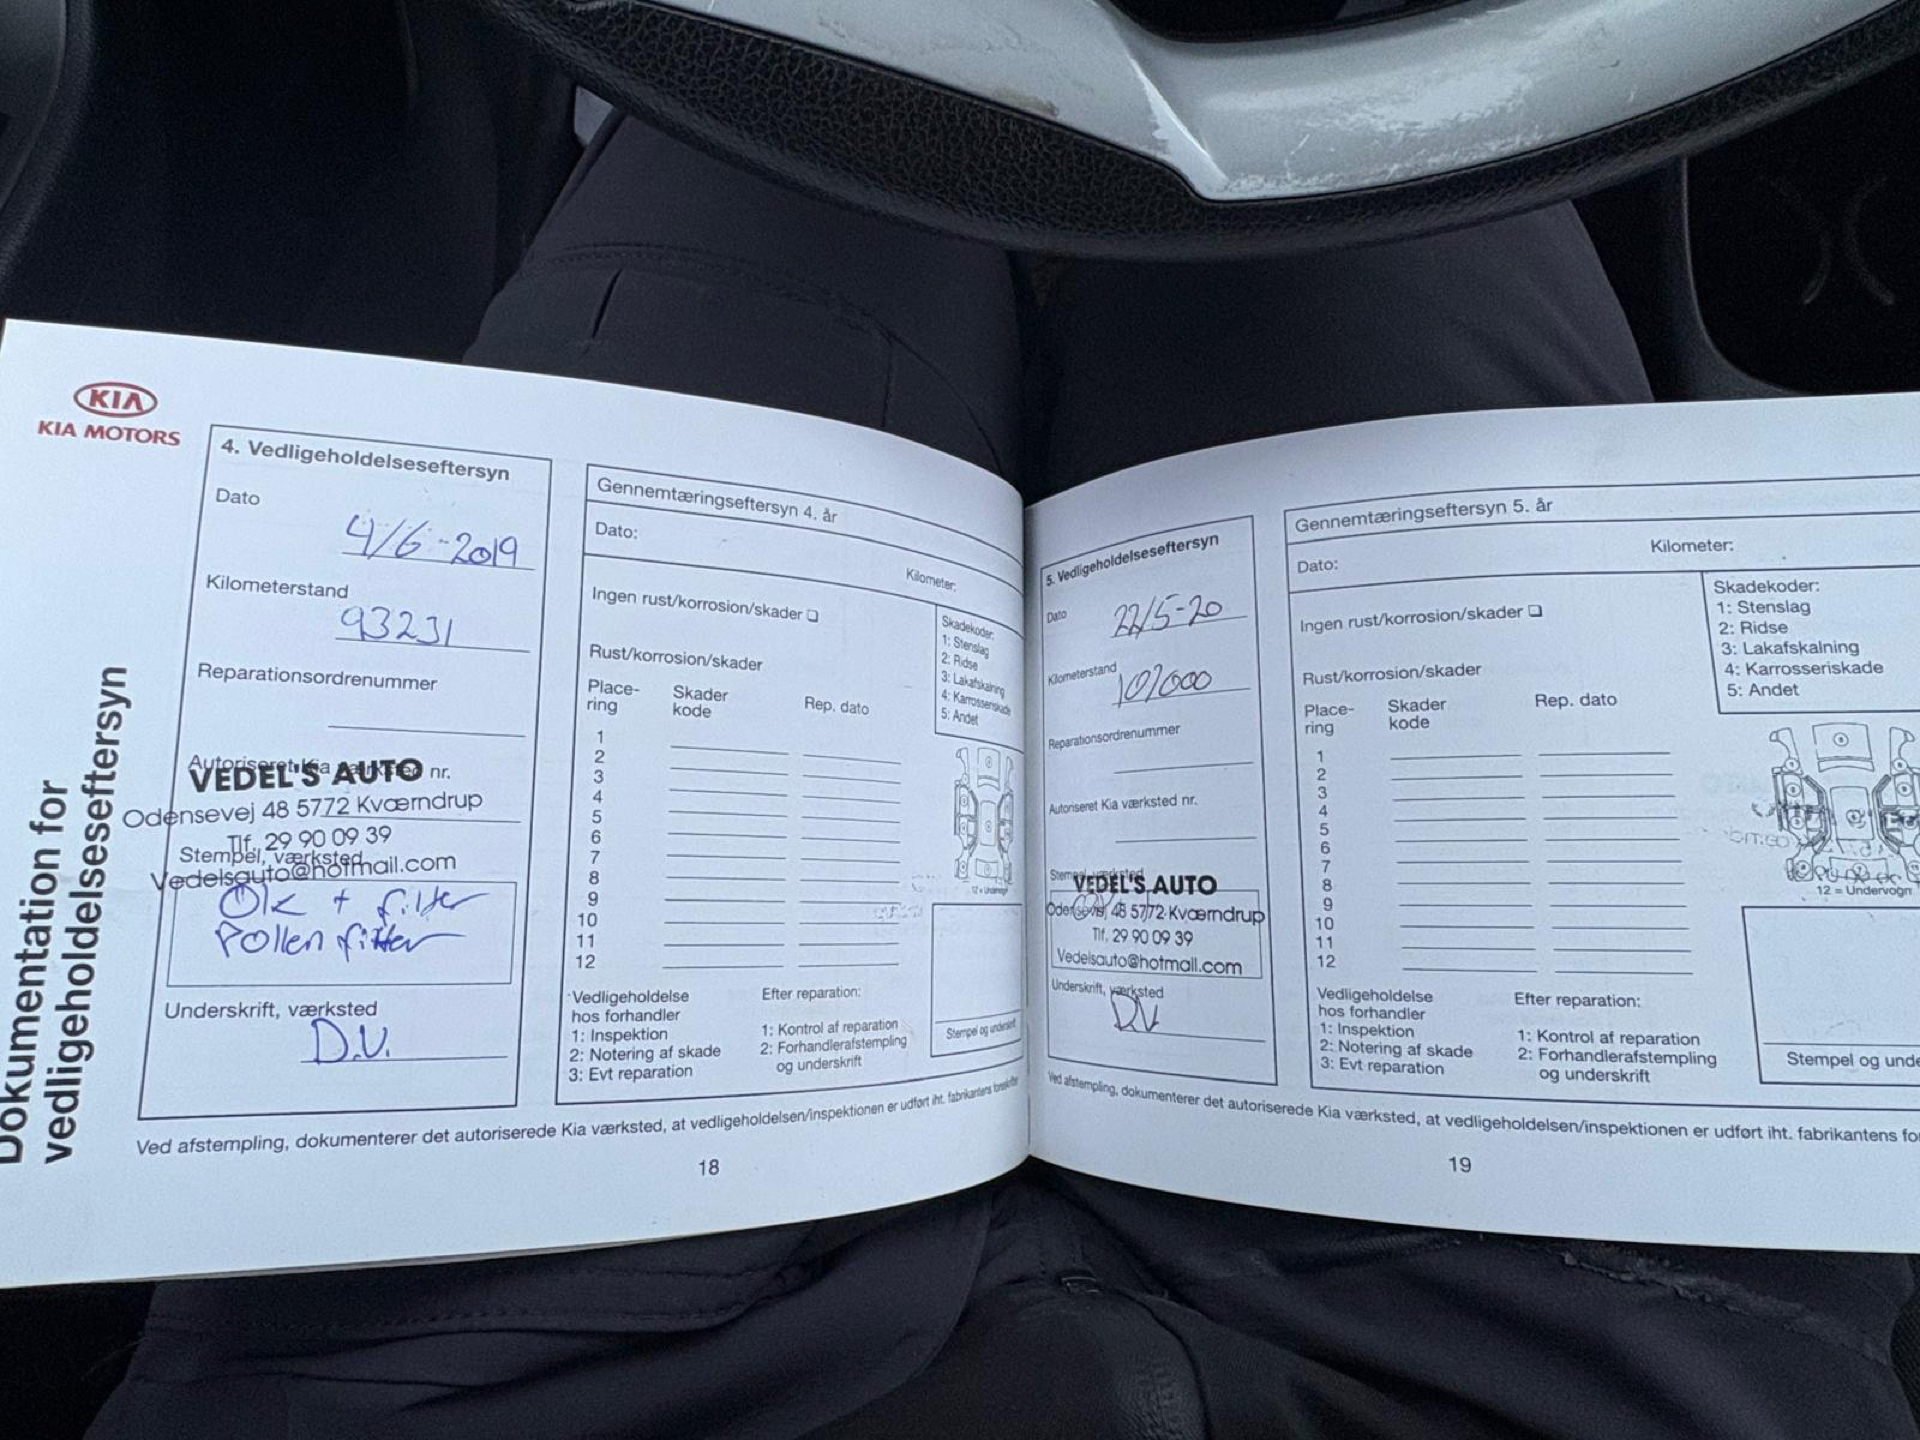 KIA
KIA MOTORS
Dokumentation for
vedligeholdelseseftersyn
4. Vedligeholdelseseftersyn
Dato
4/6-2019
Kilometerstand
93231
Reparationsordrenummer
Autoriseret Kia værksted nr.
VEDEL'S AUTO
Odensevej 48 5772 Kværndrup
Tlf. 29 90 09 39
Stempel, værksted
Vedelsauto@hotmail.com
Olie + filter
Pollen filter
Underskrift, værksted
D.V.
Gennemtæringseftersyn 4. år
Dato:
Kilometer:
Ingen rust/korrosion/skader
Rust/korrosion/skader
Skadekoder:
1: Stenslag
2: Ridse
3: Lakafskalning
4: Karrosseriskade
5: Andet
Place-
ring
Skader
kode
Rep. dato
1
2
3
4
5
6
7
8
9
10
11
12
12 = Undervogn
Vedligeholdelse
hos forhandler
1: Inspektion
2: Notering af skade
3: Evt reparation
Efter reparation:
1: Kontrol af reparation
2: Forhandlerafstempling
og underskrift
Stempel og underskrift
Ved afstempling, dokumenterer det autoriserede Kia værksted, at vedligeholdelsen/inspektionen er udført iht. fabrikantens forskrifter
18
5. Vedligeholdelseseftersyn
Dato
22/5-20
Kilometerstand
Reparationsordrenummer
Autoriseret Kia værksted nr.
Stempel, værksted
VEDEL'S AUTO
Odensevej 48 5772 Kværndrup
Tlf. 29 90 09 39
Vedelsauto@hotmail.com
Underskrift, værksted
D.V.
Gennemtæringseftersyn 5. år
Dato:
Kilometer:
Ingen rust/korrosion/skader
Rust/korrosion/skader
Skadekoder:
1: Stenslag
2: Ridse
3: Lakafskalning
4: Karrosseriskade
5: Andet
Place-
ring
Skader
kode
Rep. dato
1
2
3
4
5
6
7
8
9
10
11
12
12 = Undervogn
Vedligeholdelse
hos forhandler
1: Inspektion
2: Notering af skade
3: Evt reparation
Efter reparation:
1: Kontrol af reparation
2: Forhandlerafstempling
og underskrift
Stempel og unde
Ved afstempling, dokumenterer det autoriserede Kia værksted, at vedligeholdelsen/inspektionen er udført iht. fabrikantens fo
19